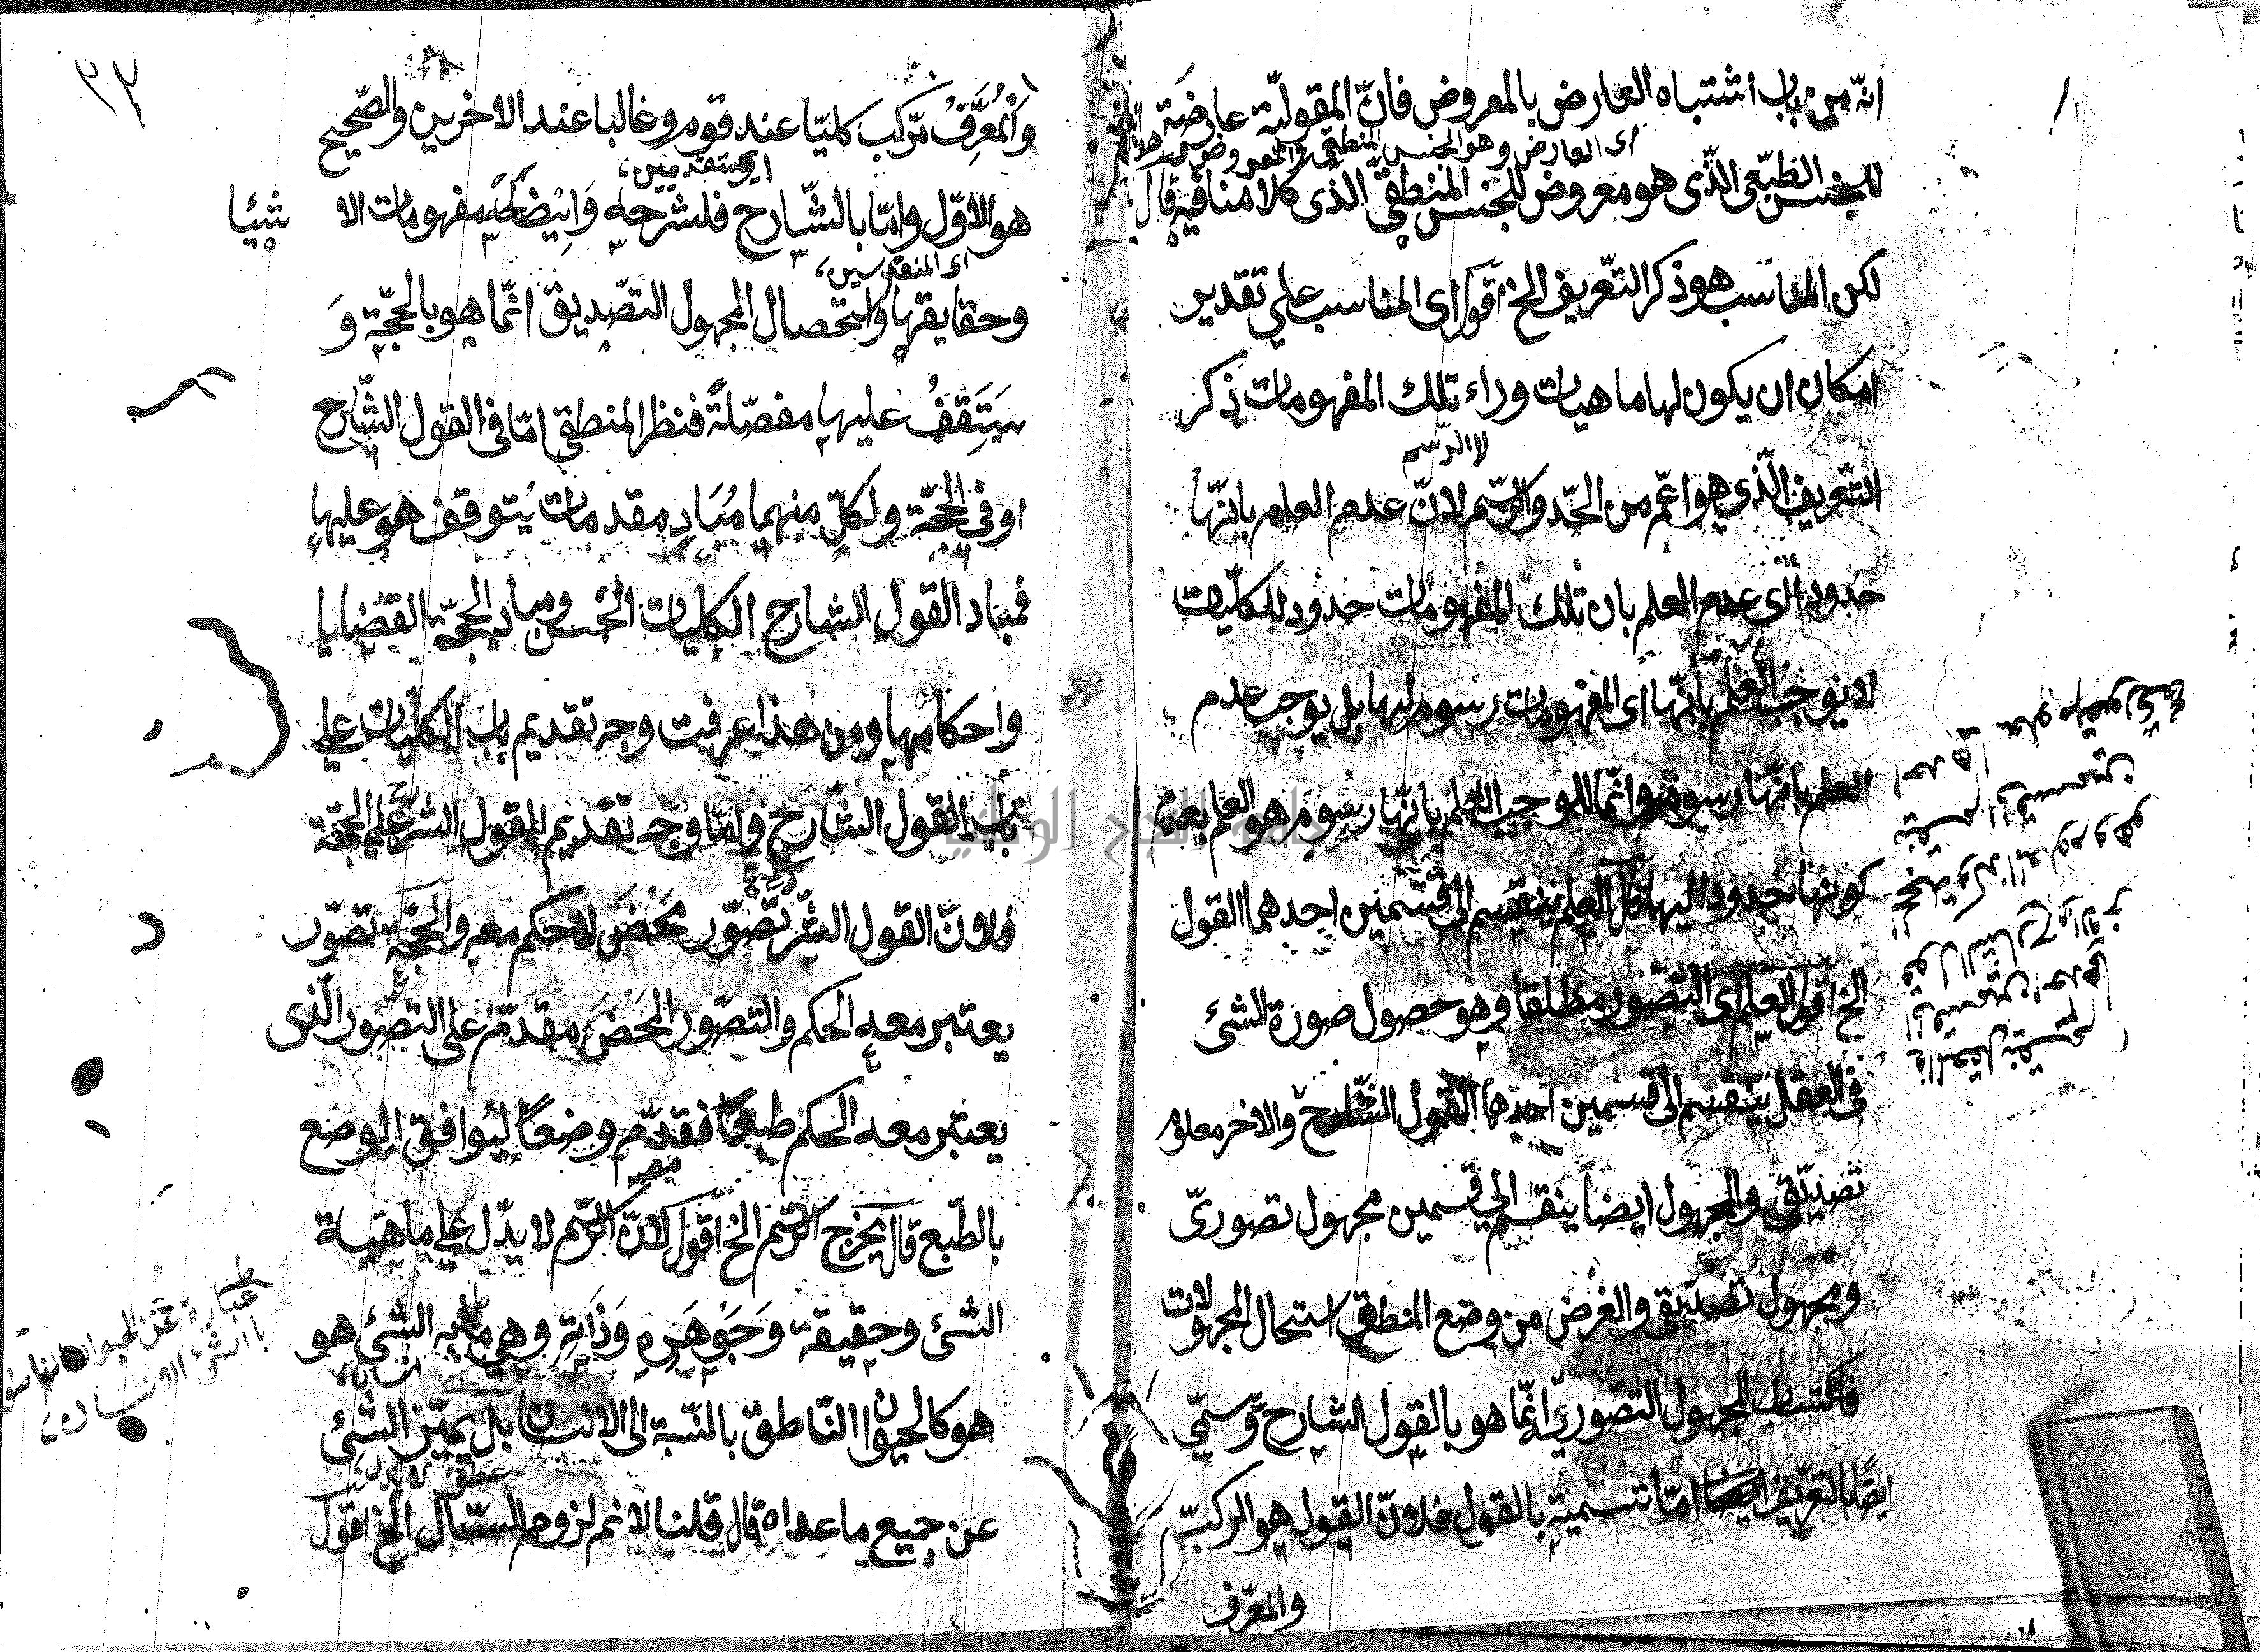 انّه من باب اشتباه العارض بالمعروض فانّ المقوليّة عارضة
اى العارض وهو الجنس المنطقى
للجنس الطّبعى الّذى هو معروض للجنس المنطقىّ الّذى كلامنا فيه قال
لكن المناسب هو ذكر التّعريف الخ اقول اى المناسب على تقدير
امكان ان يكون لها ماهيات وراء تلك المفهومات ذكر
لا الرّسم
التّعريف الّذى هو اعّم من الحّد والرّسم لانّ عدم العلم بانّها
حدود اى عدم العلم بان تلك المفهومات حدود للكلّيات
لا يوجب العلم بانّها اى المفهومات رسوم لها بل يوجب عدم
العلم بانّها رسوم وانّما الموجب العلم بانّها رسوم هو العلم بعدم
كونها حدودا لها قال العلم ينقسم الى قسمين احدهما القول
الخ اقول العلم اى التصّور مطلقا وهو حصول صورة الشئ
فى العقل ينقسم الى قسمين احدها القول الشّارح والاخر معلوم
تصديّقى والمجهول ايضا ينقسم الى قسمين مجهول تصورىّ
ومجهول تصديقى والغرض من وضع المنطقى استحصال المجهولات
فاكتساب المجهول التصّوريّ انّما هو بالقول الشارح وّسمّى
ايضًا بالتعّريف امّا تسميته بالقول فلانّ القول هو المركبّ
والمعرّف
٣٢
وَالْمُعَرِّفُ مرّكب كليّا عند قوم وغالبا عند الاخرين والصّحيح
اى المتقدمين
هو الاوّل وامّا بالشّارح فلشرحه وَاِيْضَاحِه مفهومات الا شيئا
اى المتقدمين
وحقايقها واستحصال المجهول التصّديق انّما هو بالحجّة وَ
سَتَقِفُ عليها مفصّلةً فنظر المنطقى امّا فى القول الشّارح
او فى الحجّة ولكلّ منهما مُبَادٍ مقدمات يُتوقف هو عليها
فمباد القول الشارح الكليات الخمس ومباد الحجّة القضايا
واحكامها ومن هذا عرفت وجه تقديم باب الكلّيات على
باب القول الشّارح وامّا وجه تقديم القول الشرّ على الحجّة
فلانّ القول الشّر تصّور مَحْضَ لا حكم معه والحجّة تصّور
يعتبر معه الحكم والتصّور المَحْضَ مقدّم على التصّور الّذى
يعتبر معه الحكم طبعًا فقدّم وضعًا ليُوافق الوضع
بالطّبع قال يخرج الرّسم الخ اقول لانّ الرّسم لا يدّل على ماهيّة
الشئ وحقيقة وَجَوْهَرِه وَذَاتِهِ وهى ما به الشئ هو
هو كالحيوان النّاطق بالنّسبة الى الانسان بل يميّز الشئ
عطف لا يدل
عن جميع ما عداه قال قلنا لا نم لزوم التسّلسل الخ اقول